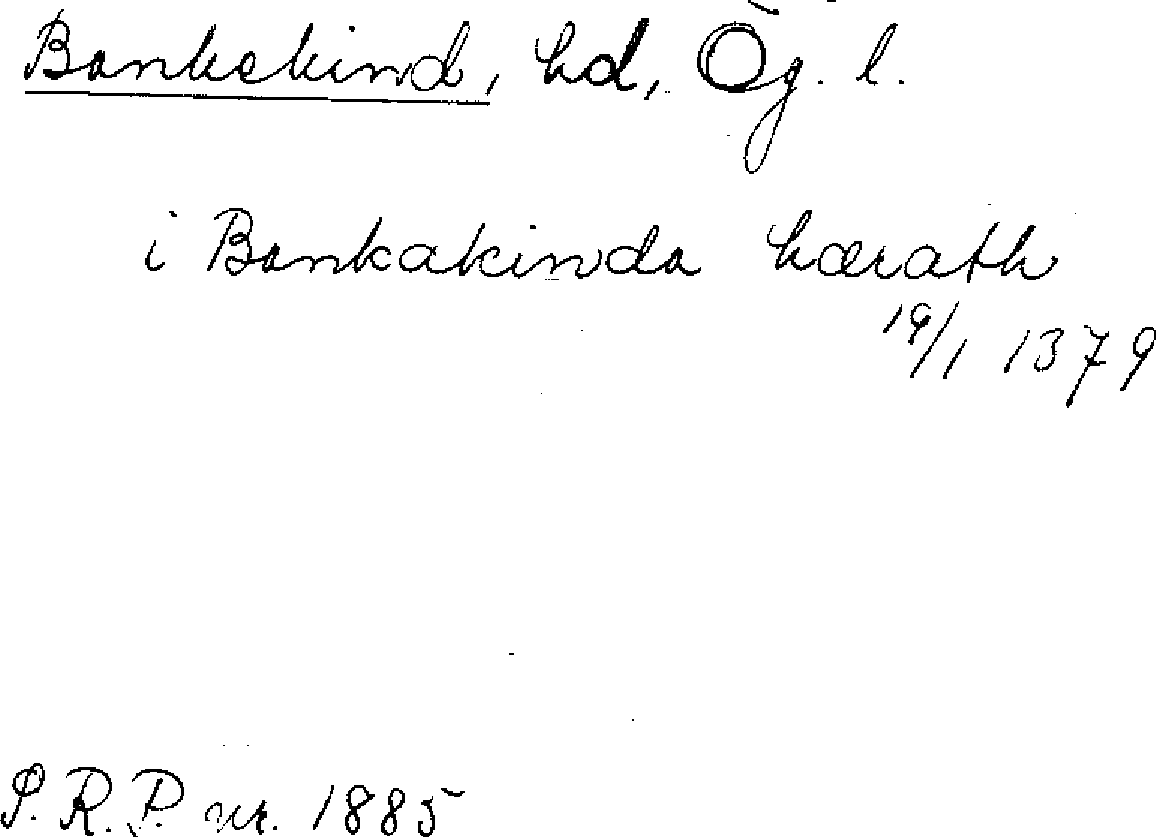 Bankekind, hd, Ög. l.
i Bankakinda hærath
19/1 1379
S.R.P. nr. 1885